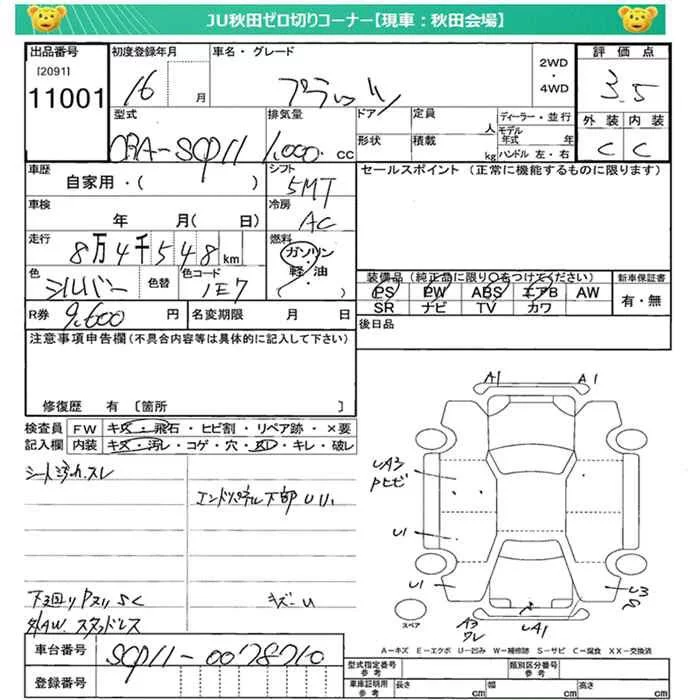 JU秋田ゼロ切りコーナー【現車：秋田会場】
出品番号 初度登録年月 車名・グレード 評価点
[2091]
11001
16 月 プラッツ 2WD・4WD 3.5
型式 排気量 ドア 定員 人 ディーラー・並行 外装 内装
DBA-SCP11 1,000 cc 形状 積載 kg モデル年式 年 ハンドル 左・右 C C
車歴 シフト セールスポイント（正常に機能するものに限ります）
自家用・( ) 5MT
車検 冷房
年 月( 日) AC
走行 燃料
8万4千548km ガソリン
色 色替 色コード 軽・油
シルバー 1E7 ( )
装備品（純正品に限り○をつけてください） 新車保証書
PS PW ABS エアB AW 有・無
SR ナビ TV カワ
R券 9,600 円 名変期限 月 日 後日品
注意事項申告欄（不具合内容等は具体的に記入して下さい）
修復歴 有 〔箇所 〕
検査員 FW キズ・飛石・ヒビ割・リペア跡・×要
記入欄 内装 キズ・汚レ・コゲ・穴・・キレ・破レ
エンドパネル下部 U
下回り Pヌリ SC
外AW. スタッドレス
A1 A1
UA3
Pヒビ
U1
U1
U3
S
A3
ワレ
UA1
スペア
A－キズ E－エクボ U－凹み W－補修跡 S－サビ C－腐食 XX－交換済
車台番号 SCP11-0078710
登録番号
型式指定番号 参考 類別区分番号 参考
車庫証明用 参考 長さ cm 幅 cm 高さ cm